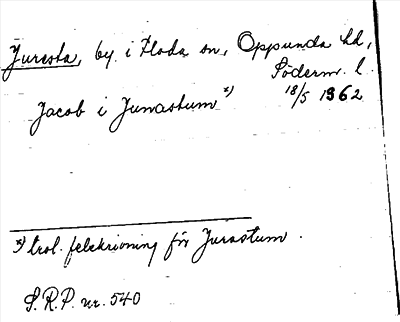 Jursta, by i Floda sn, Oppunda hd,
Söderm. l.
18/5 1362
Jacob i Junastum x)
x) trol. felskrivning för Jurastum.
S.R.P. nr. 540